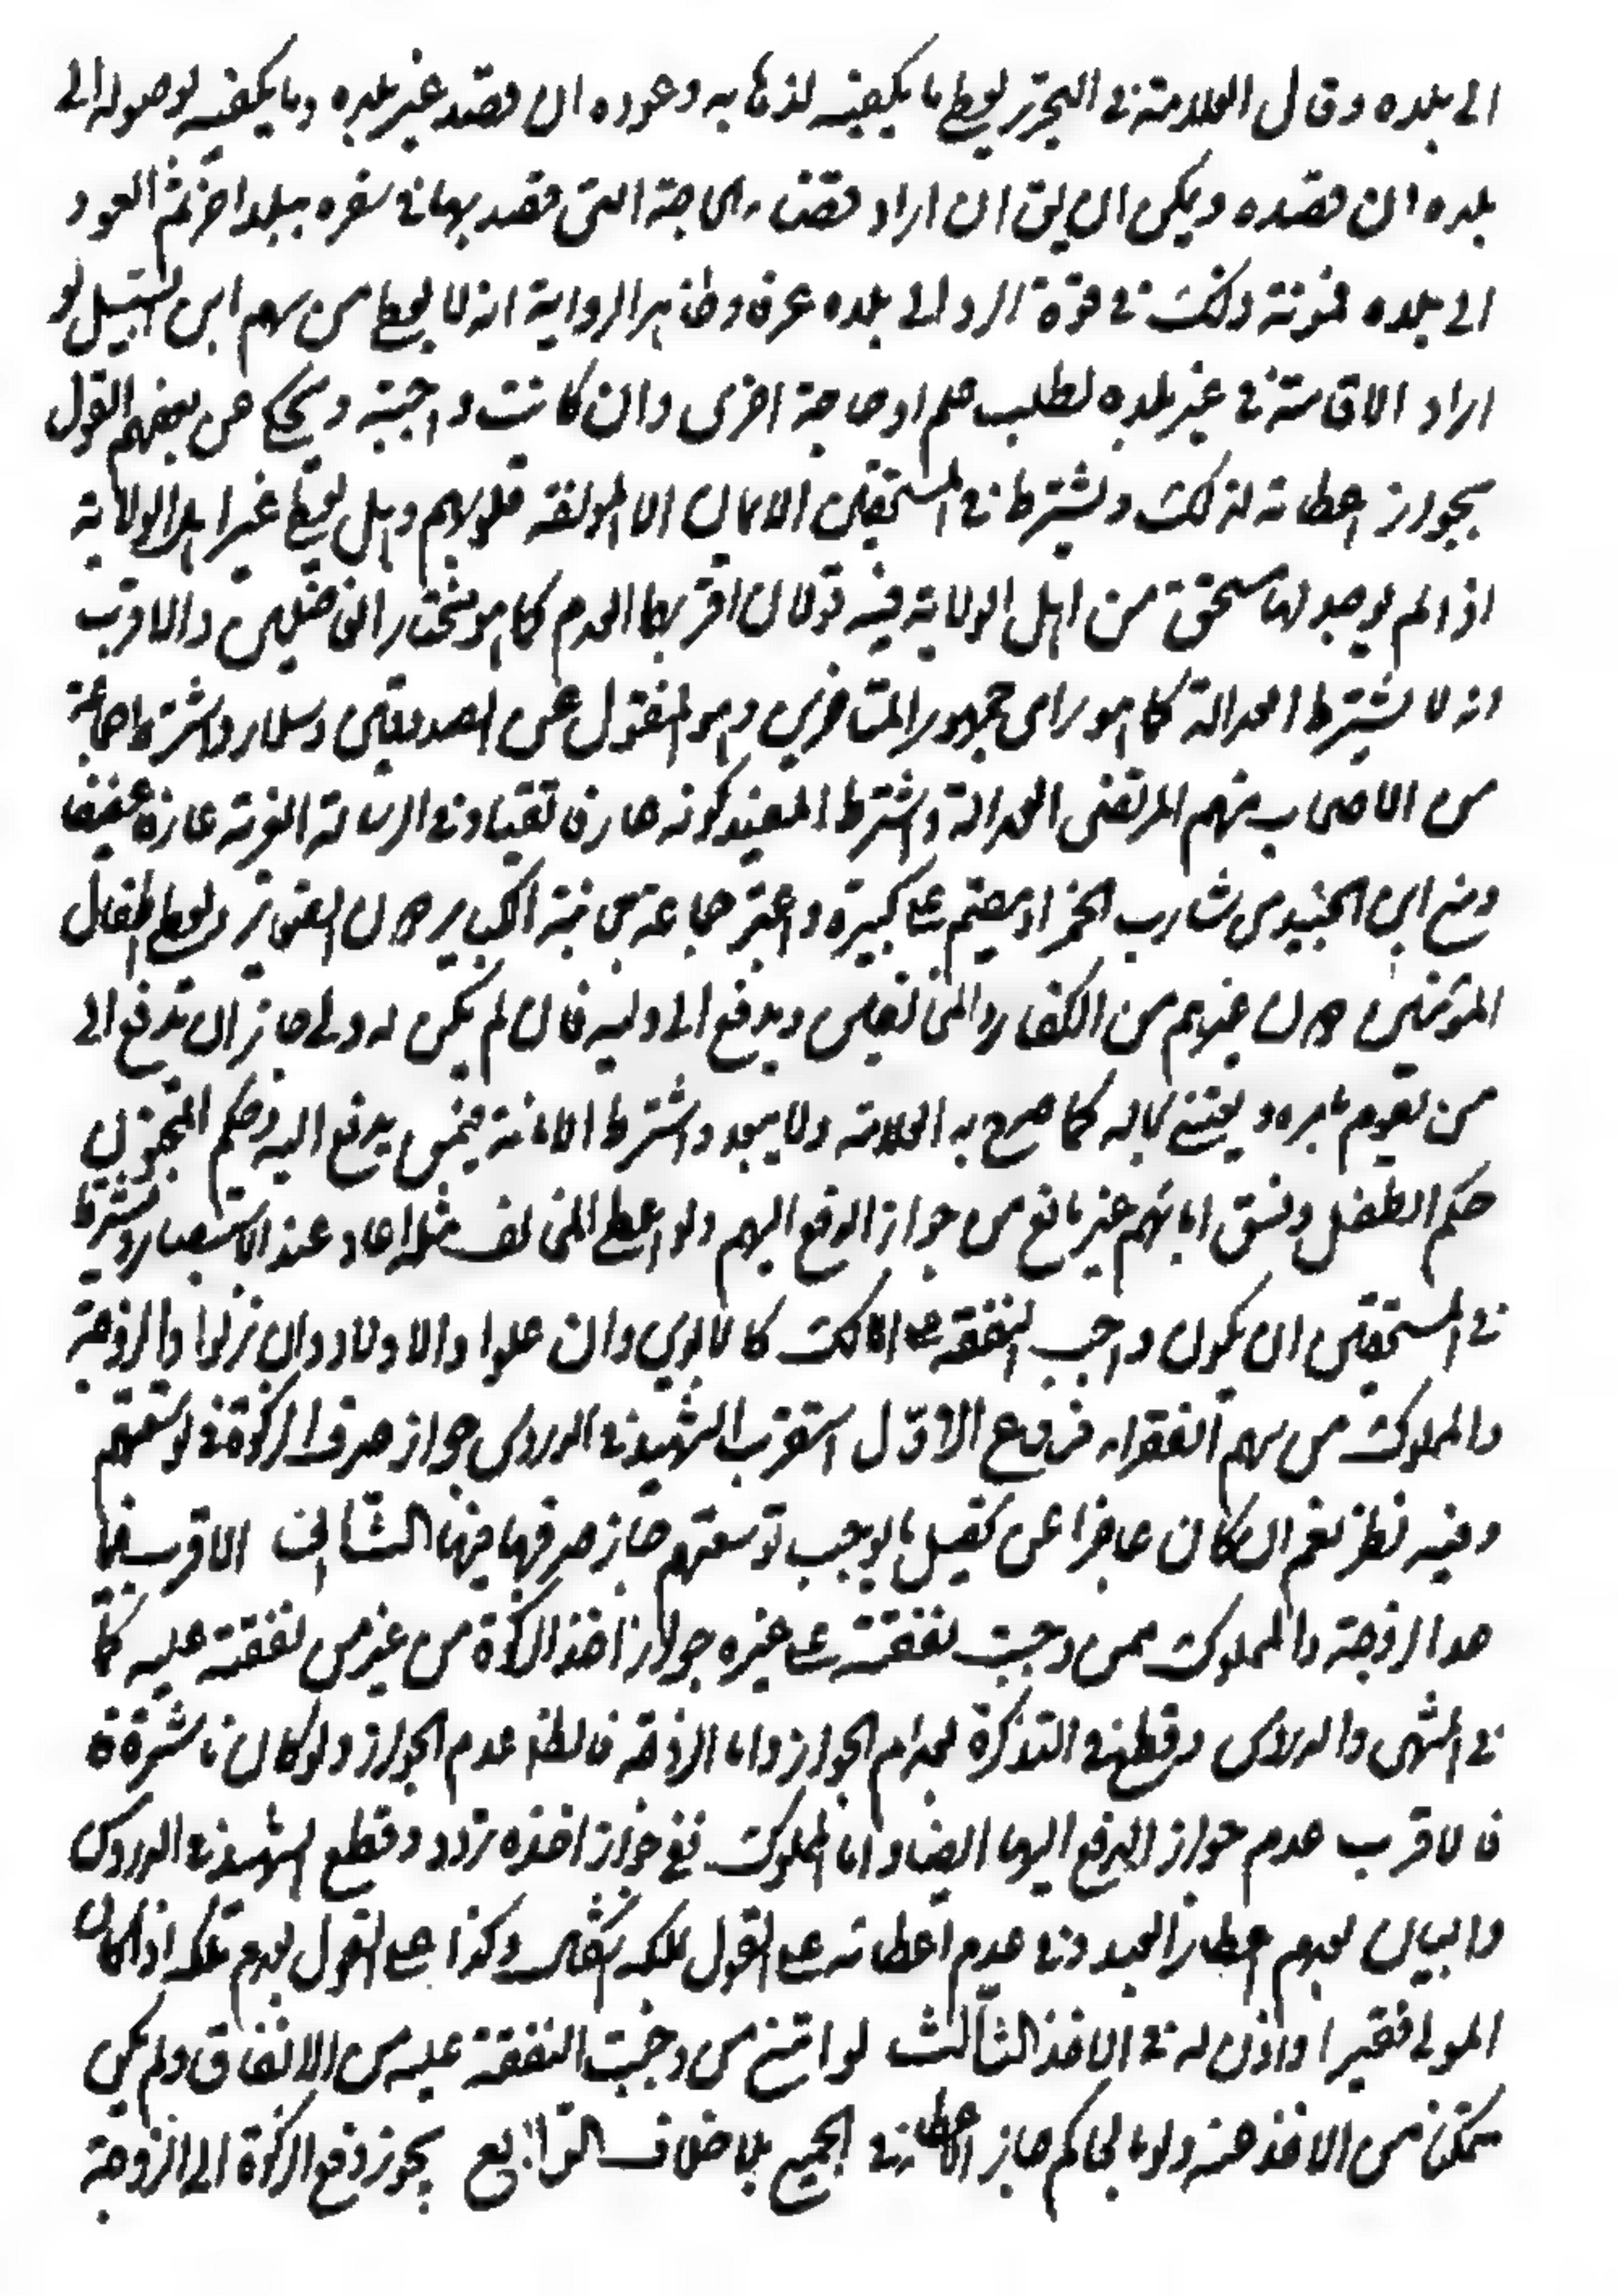 الى بلده وقال العلامة في التحرير يعطى ما يكفيه لذهابه وعوده ان قصد غير بلده وما يكفيه لوصوله الى
بلده ان قصده ويمكن ان يق ان اراد قضاء الحاجة التي قصد بها في سفره ببلد اخر ثم العود
الى بلده فمؤنة ذلك في قوة الرد الى بلده عرفا وظاهر الرواية انه لا يعطى من سهم ابن السبيل لو
اراد الاقامة في غير بلده لطلب علم او حاجة اخرى وان كانت واجبة ويحكى عن بعضهم القول
بجواز اعطائه لذلك ويشترط في المستحقين الايمان الا المؤلفة قلوبهم وهل يعطى غير اهل الولاية
اذا لم يوجد لها مستحق من اهل الولاية فيه قولان اقربهما العدم كما هو مختار الفاضلين والاقرب
انه لا يشترط العدالة كما هو راى جمهور المتاخرين وهو المنقول عن الصدوقين وسلار واشترط جماعة
من الاصحاب منهم المرتضى العدالة واشترط المفيد كونه عارفا تقيا وفي الرسالة الغرية عارفا عفيفا
ومنع ابن الجنيد من شارب الخمر او مقيم على كبيرة واعتبر جماعة مجانبة الكباير دون الصغاير ويعطى اطفال
المؤمنين دون غيرهم من الكفار والمخالفين ويدفع الى وليه فان لم يكن له ولي جاز ان يدفع الى
من يقوم بامره ويعتني بحاله كما صرح به العلامة ولا يبعد اشتراط الامانة فيمن يدفع اليه وحكم المجنون
حكم الطفل وفسق ابائهم غير مانع من جواز الدفع اليهم ولو اعطى المخالف مثله اعاد عند الاستبصار ويشترط
في المستحقين ان لا يكون واجب النفقة على المالك كالابوين وان علوا والاولاد وان نزلوا والزوجة
والمملوك من سهم الفقراء فروع الاول استقرب الشهيد في الدروس جواز صرف الزكوة في توسعتهم
وفيه نظر نعم ان كان عاجزا عن تحصيل ما يوجب توسعتهم جاز صرفها فيها الثاني الاقرب فيما
عدا الزوجة والمملوك ممن وجبت نفقته على غيره جواز اخذ الزكوة من غير من نفقته عليه كما
في المنتهى والدروس وقطع في التذكرة بعدم الجواز واما الزوجة فالظ عدم الجواز ولو كان ناشزة
فالاقرب عدم جواز الدفع اليها ايضا واما المملوك ففي جواز اخذه تردد وقطع الشهيد في الدروس
والبيان بعدم اعطاء العبد وفي عدم اعطائه على القول بملكه اشكال وكذا على القول بعدم تملكه اذا كان
المولى فقيرا واذن له في الاخذ الثالث لو امتنع من وجبت النفقة عليه من الانفاق ولم يكن
متمكنا من الاخذ منه ولو بالحاكم جاز الاعطاء في الجميع بلا خلاف الرابع يجوز دفع الزكوة الى الزوجة